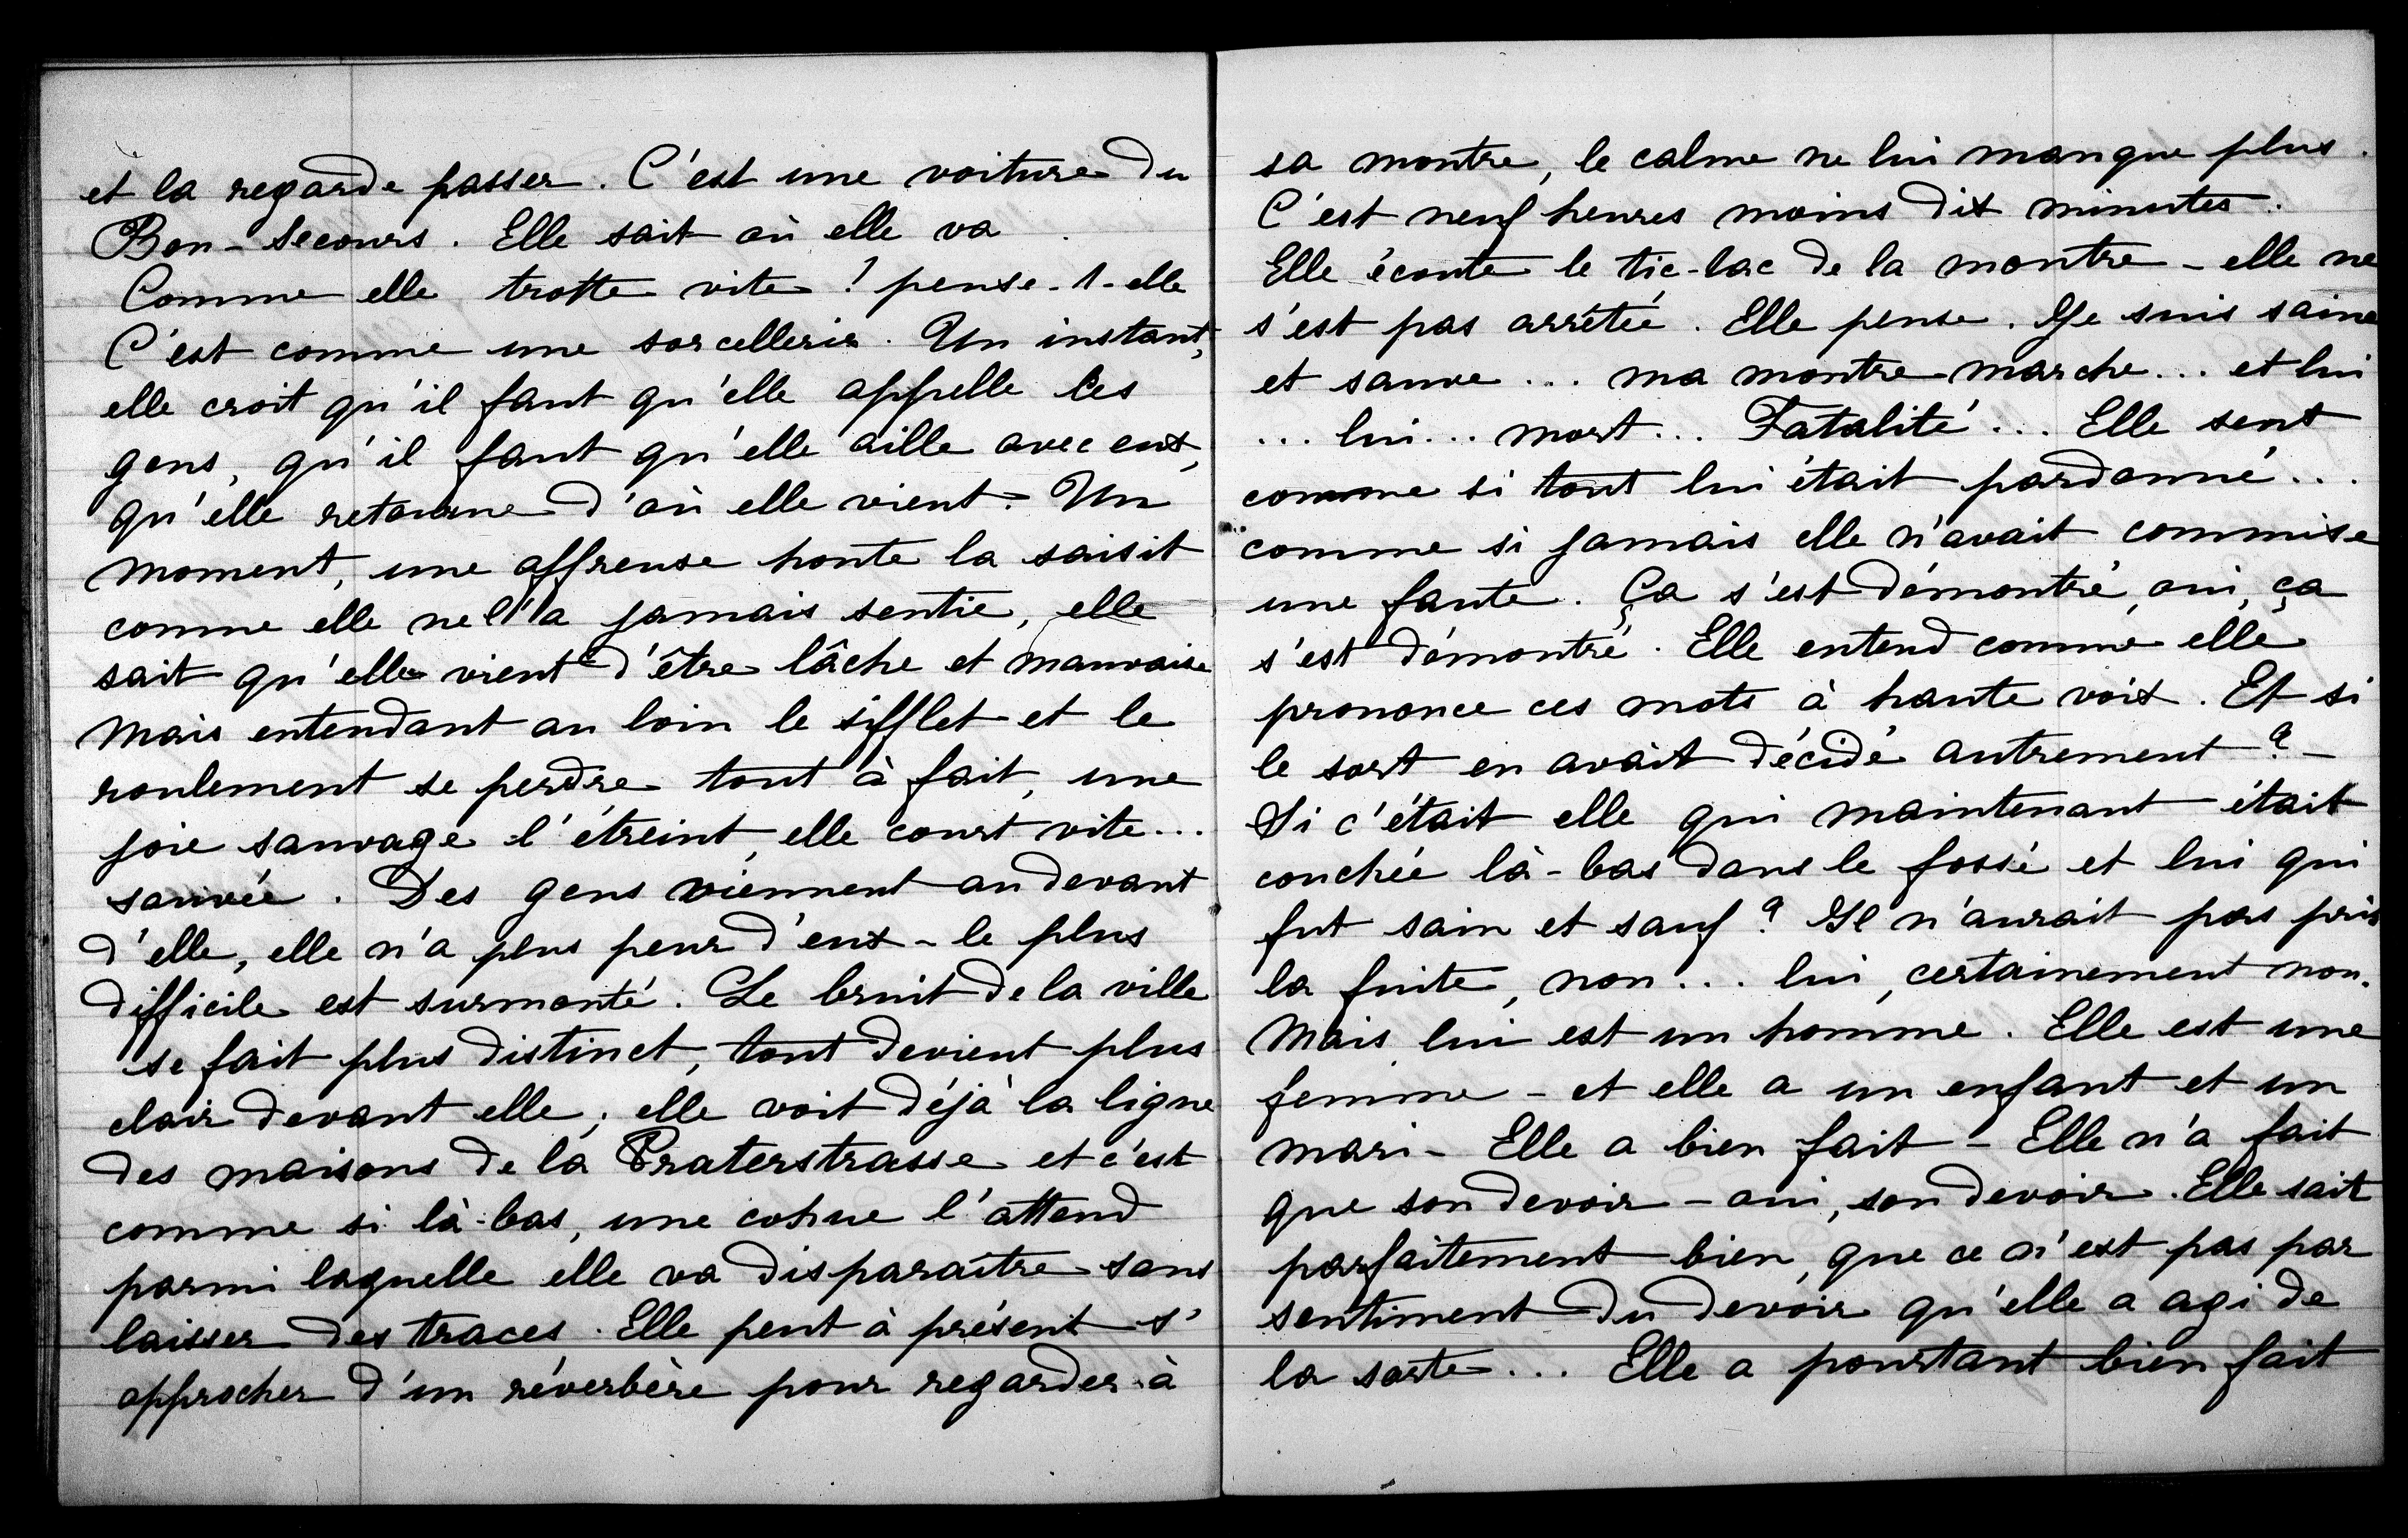 et la regarde passer. C'est une voiture du
Bon-Secours. Elle sait où elle va.
Comme elle trotte vite! pense-t-elle
C'est comme une sorcellerie. Un instant,
elle croit qu'il faut qu'elle appelle les
gens, qu'il faut qu'elle aille avec eux,
qu'elle retourne d'où elle vient. Un
moment, une affreuse honte la saisit
comme elle ne l'a jamais sentie, elle
sait qu'elle vient d'être lâche et mauvaise
Mais entendant au loin le sifflet et le
roulement se perdre tout à fait, une
joie sauvage l'étreint, elle court vite...
sauvée. Des gens viennent au devant
d'elle, elle n'a plus peur d'eux - le plus
difficile est surmonté. Le bruit de la ville
se fait plus distinct, tout devient plus
clair devant elle; elle voit déjà la ligne
des maisons de la Praterstrasse et c'est
comme si là-bas, une cohue l'attend
parmi laquelle elle va disparaître sans
laisser des traces. Elle peut à présent s'
approcher d'un réverbère pour regarder à
sa montre, le calme ne lui manque plus.
C'est neuf heures moins dix minutes.
Elle écoute le tic-tac de la montre - elle ne
s'est pas arrêtée. Elle pense. Je suis saine
et sauve... ma montre marche... et lui
... lui... mort... Fatalité... Elle sent
comme si tout lui était pardonné...
comme si jamais elle n'avait commise
une faute. Ça s'est démontré, oui, ça
s'est démontré. Elle entend comme elle
prononce ces mots à haute voix. Et si
le sort en avait décidé autrement? -
Si c'était elle qui maintenant était
couchée là-bas dans le fossé et lui qui
fut sain et sauf? Il n'aurait pas pris
la fuite, non... lui, certainement non.
Mais lui est un homme. Elle est une
femme - et elle a un enfant et un
mari - Elle a bien fait - Elle n'a fait
que son devoir - oui, son devoir. Elle sait
parfaitement bien, que ce n'est pas par
sentiment du devoir qu'elle a agi de
la sorte... Elle a pourtant bien fait